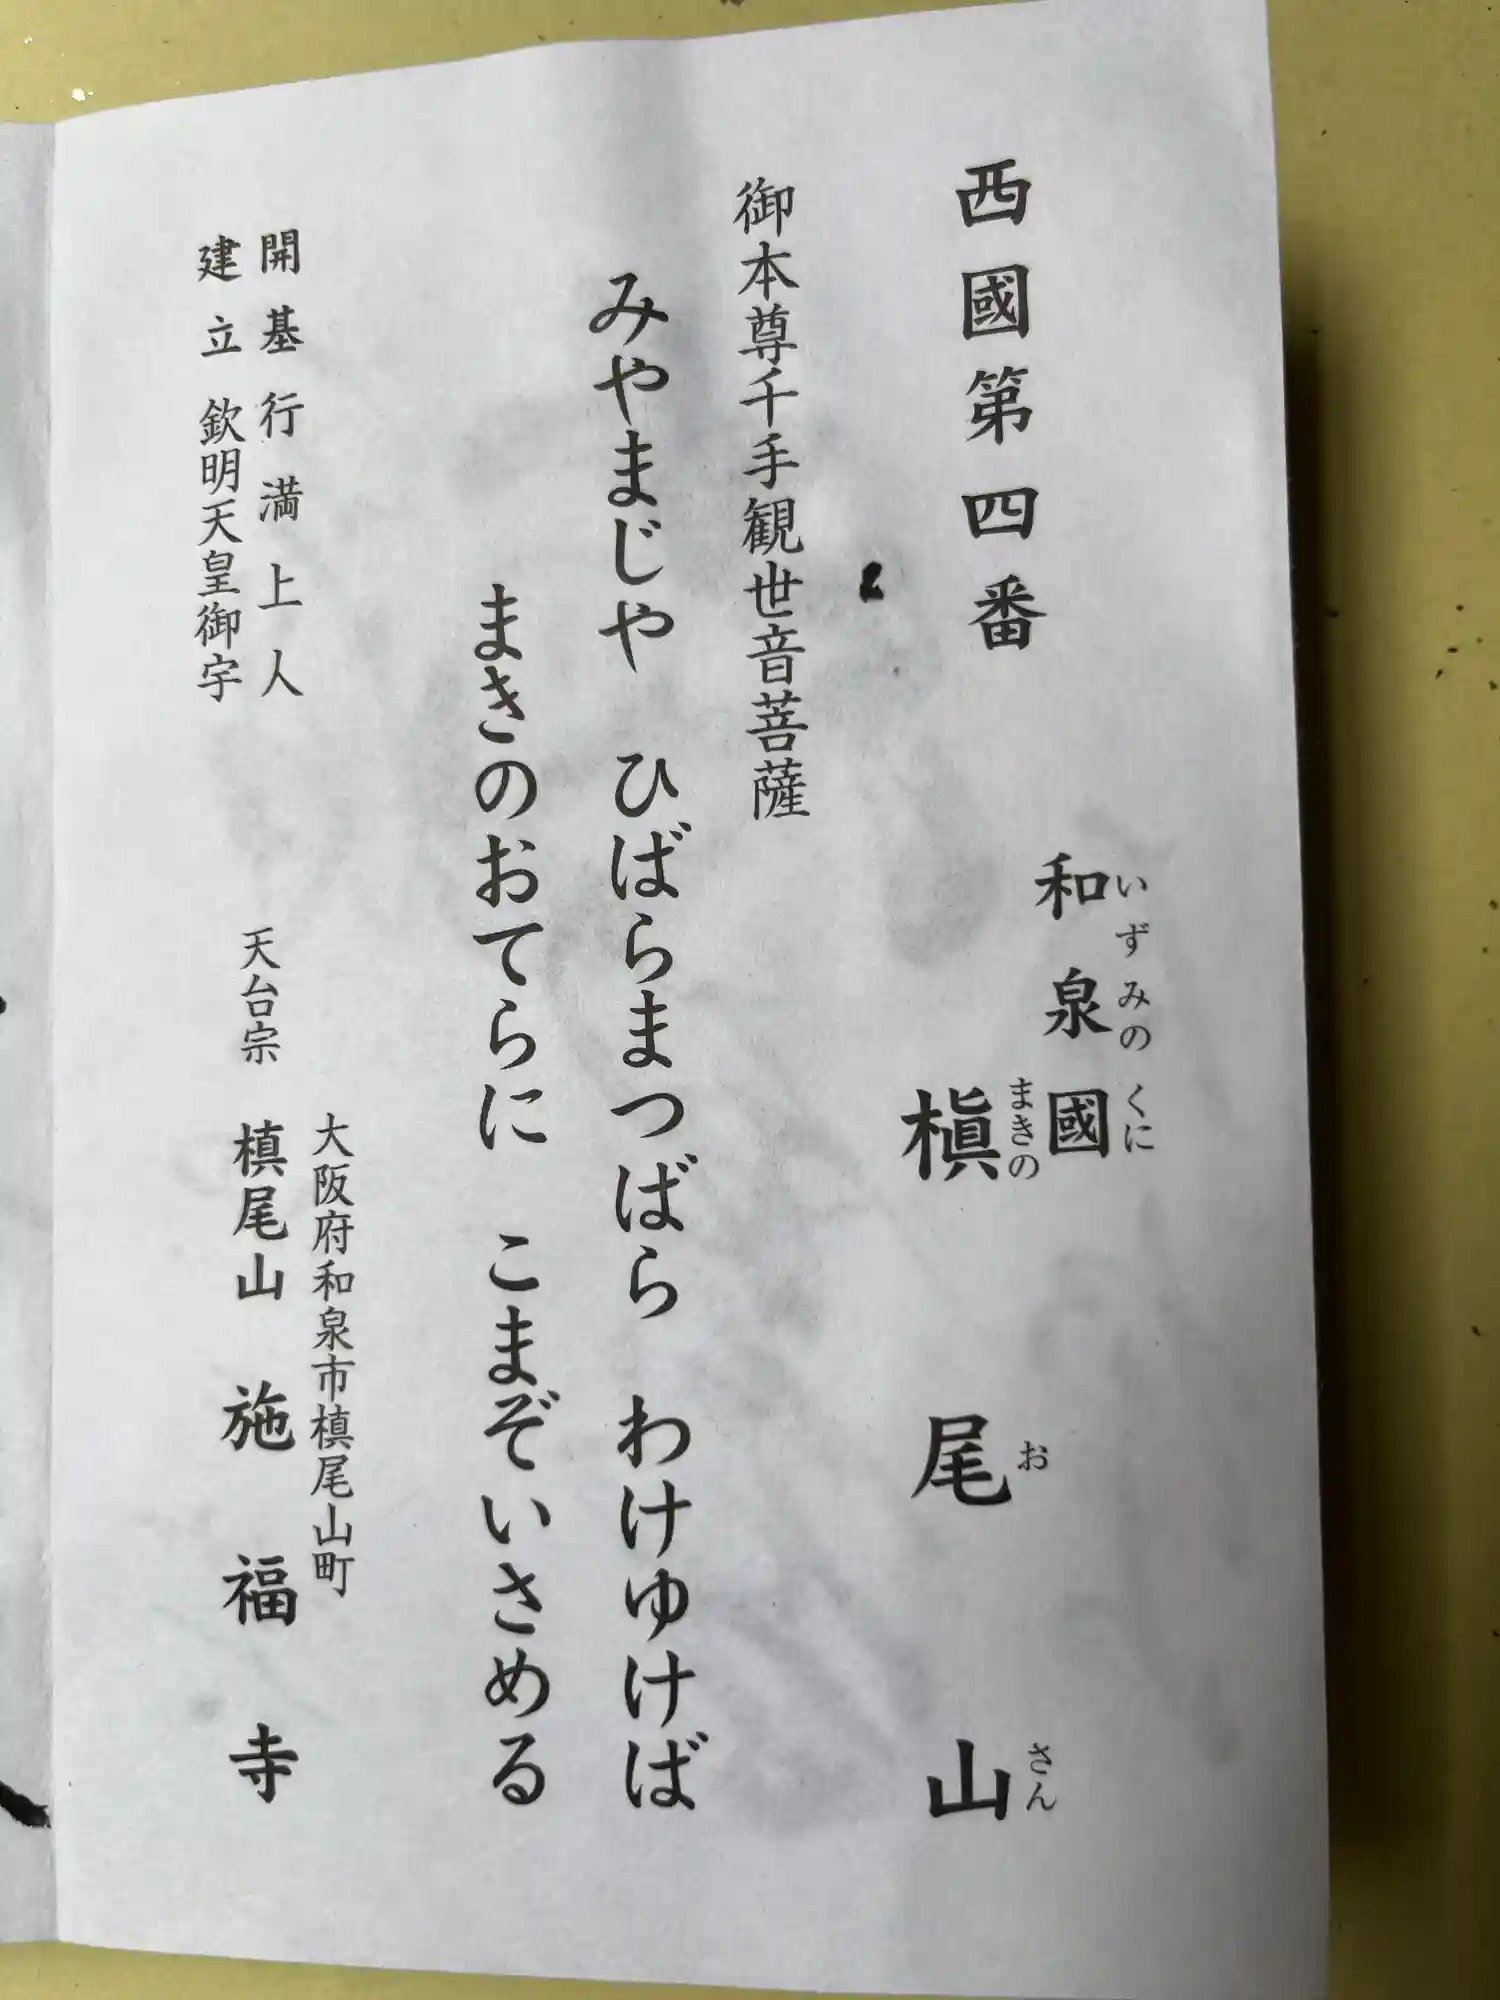 西國第四番
和泉國
いずみのくに
槇尾山
まきのおさん
御本尊千手観世音菩薩
みやまじや ひばらまつばら わけゆけば
まきのおてらに こまぞいさめる
開基行満上人
建立 欽明天皇御宇
大阪府和泉市槙尾山町
天台宗 槙尾山 施福寺